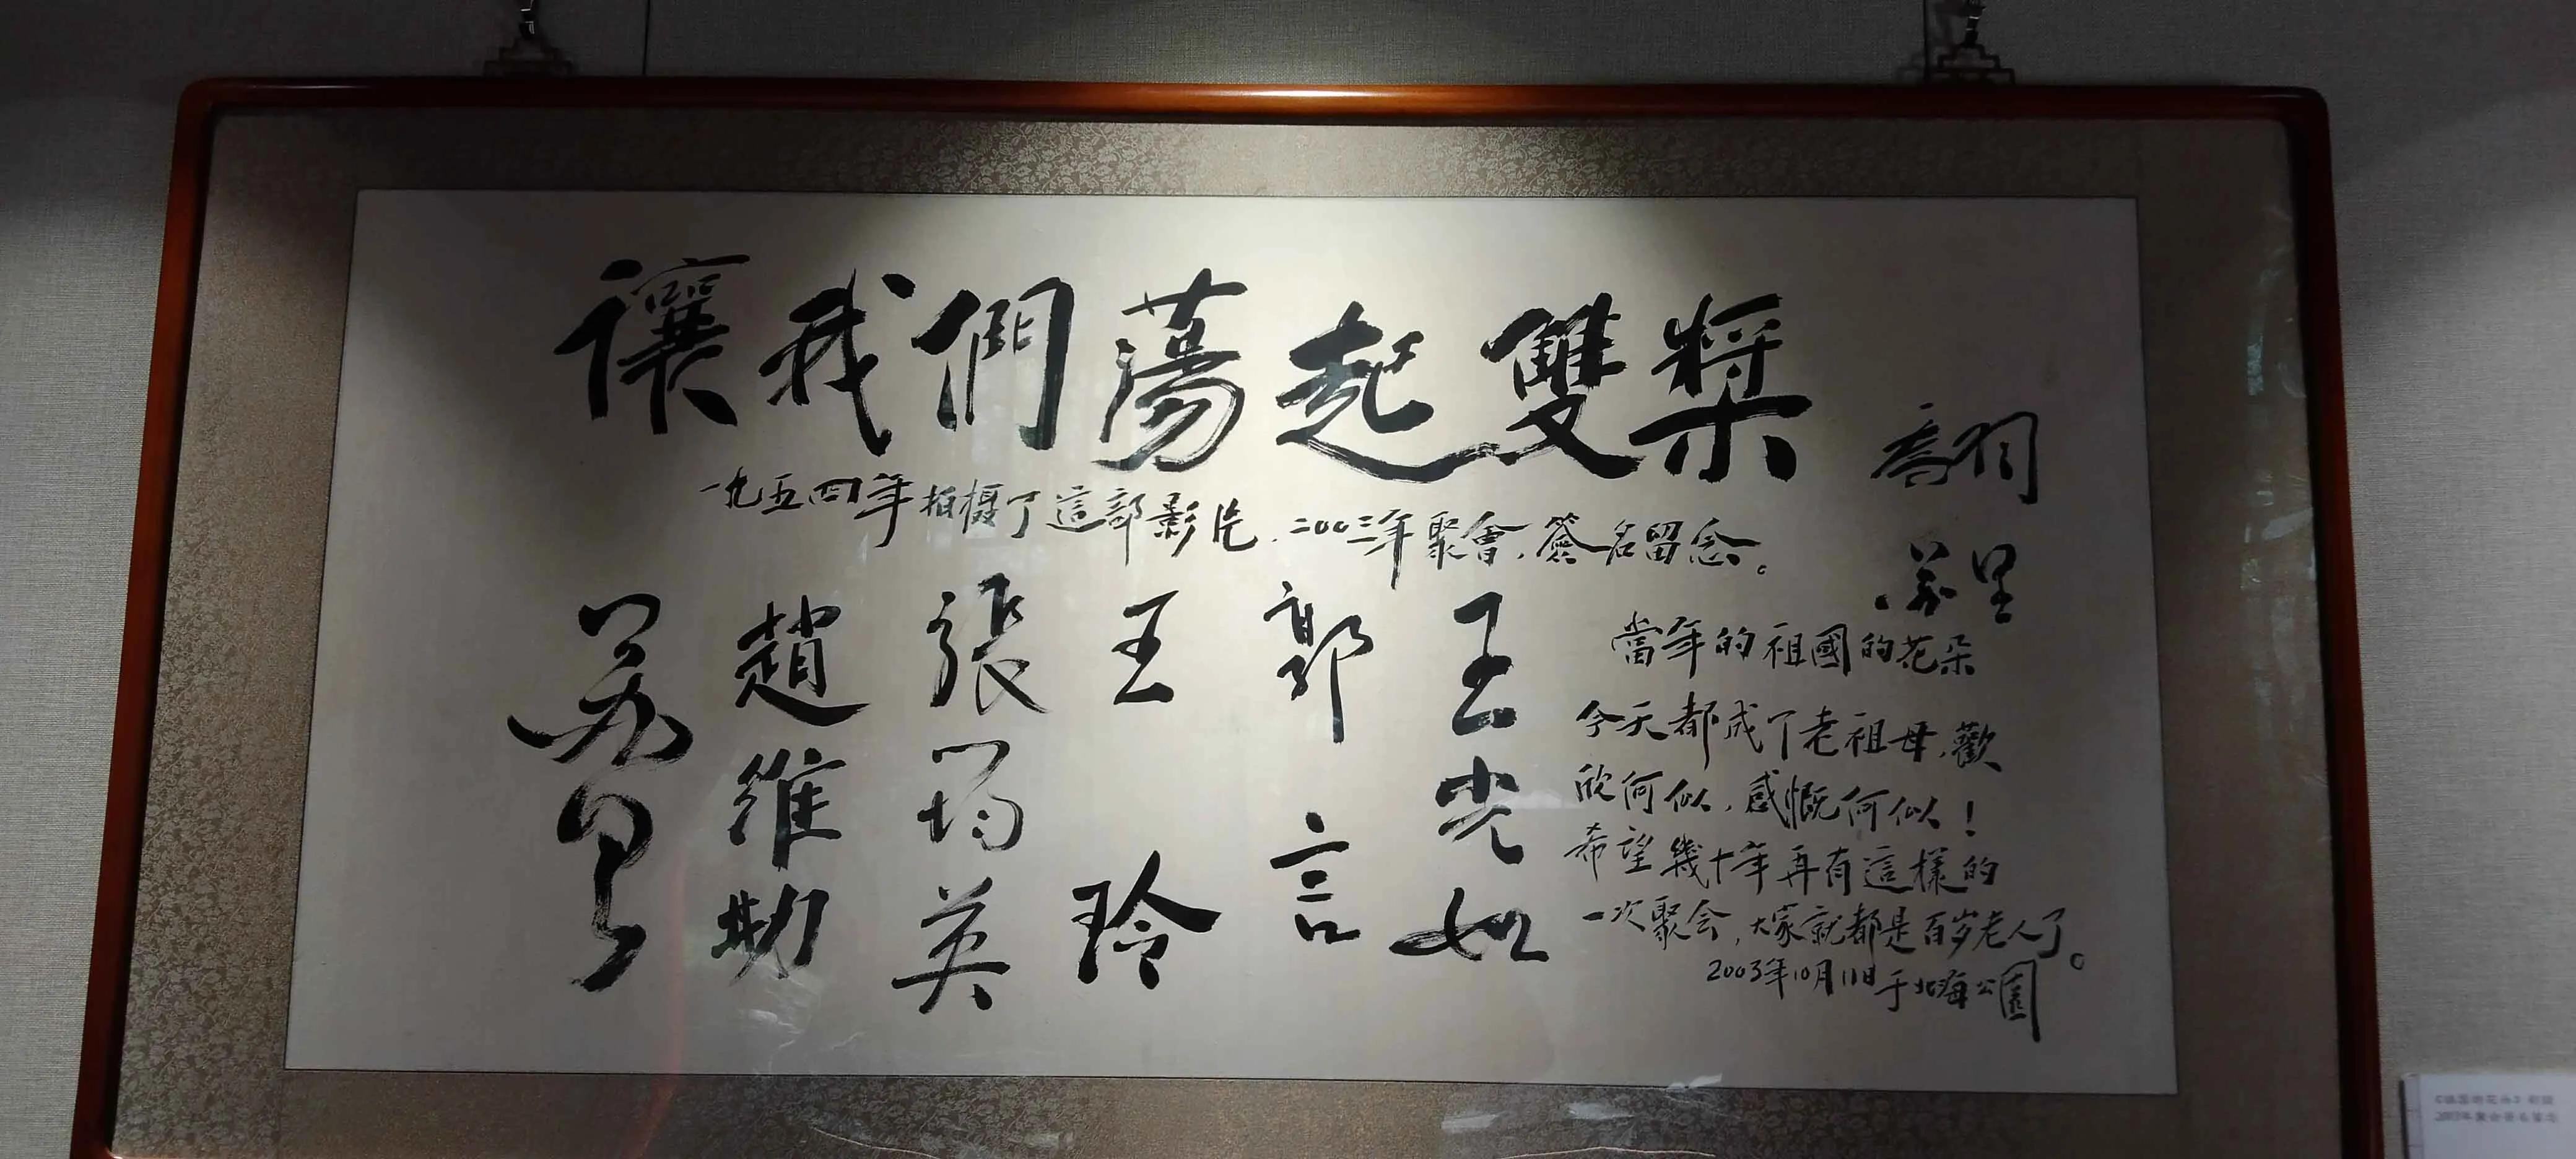 讓我們蕩起雙槳
喬羽
一九五四年拍摄了這部影片，二00三年聚會，簽名留念。
苏里
當年的祖國的花朵
今天都成了老祖母，歡
欣何似，感慨何似！
希望幾十年再有這樣的
一次聚会，大家就都是百岁老人了。
2003年10月11日于北海公園
苏里
趙維勤
張筠英
王玲
郭言
王光如